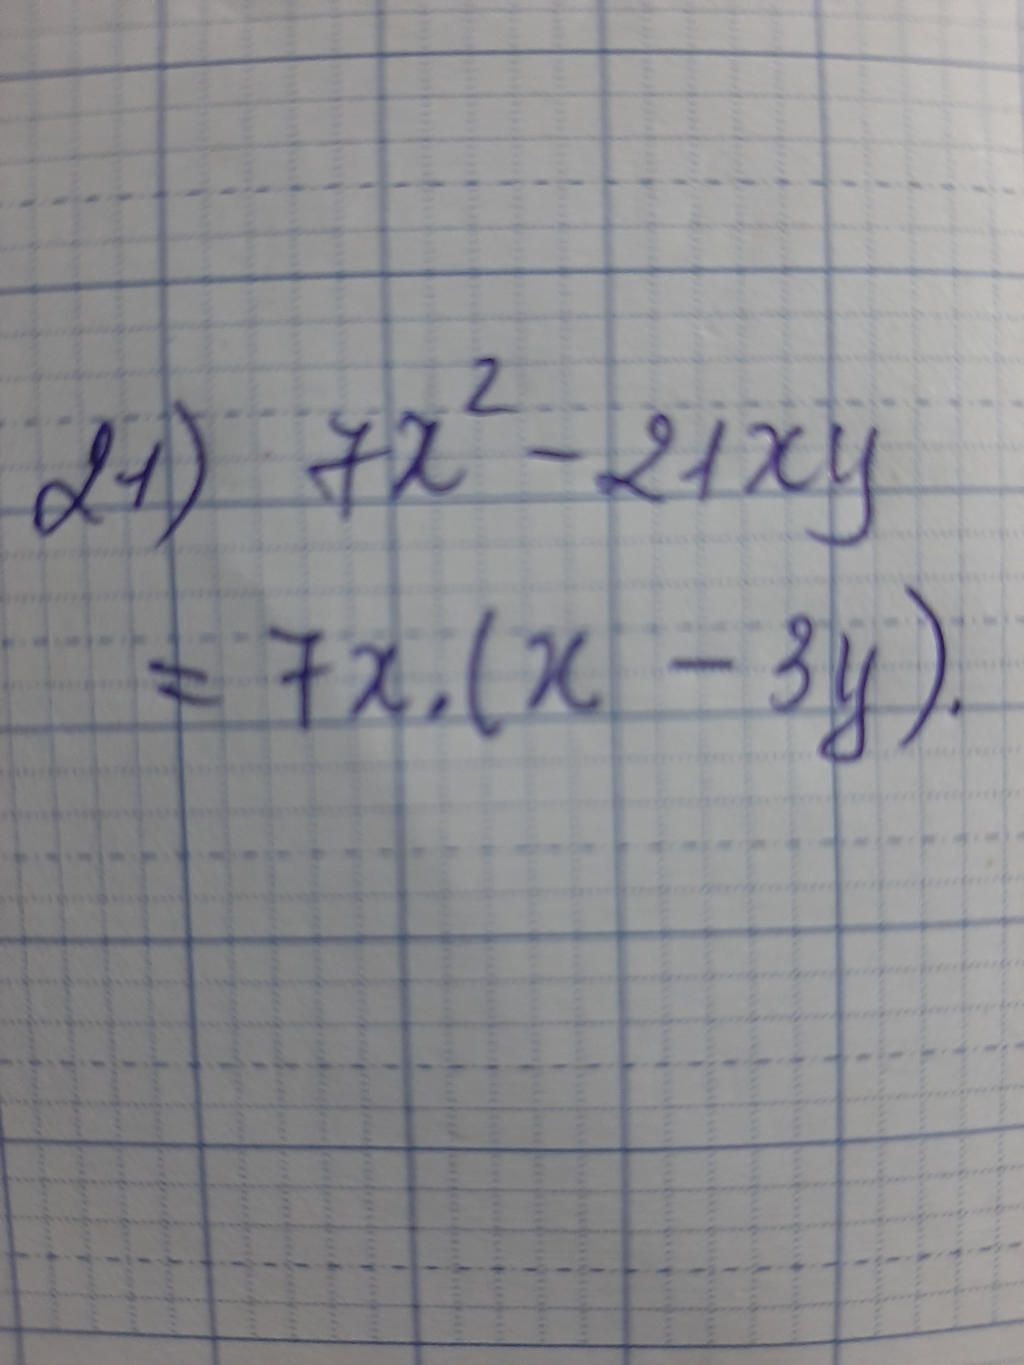 21) 7x² - 21xy
= 7x.(x - 3y).